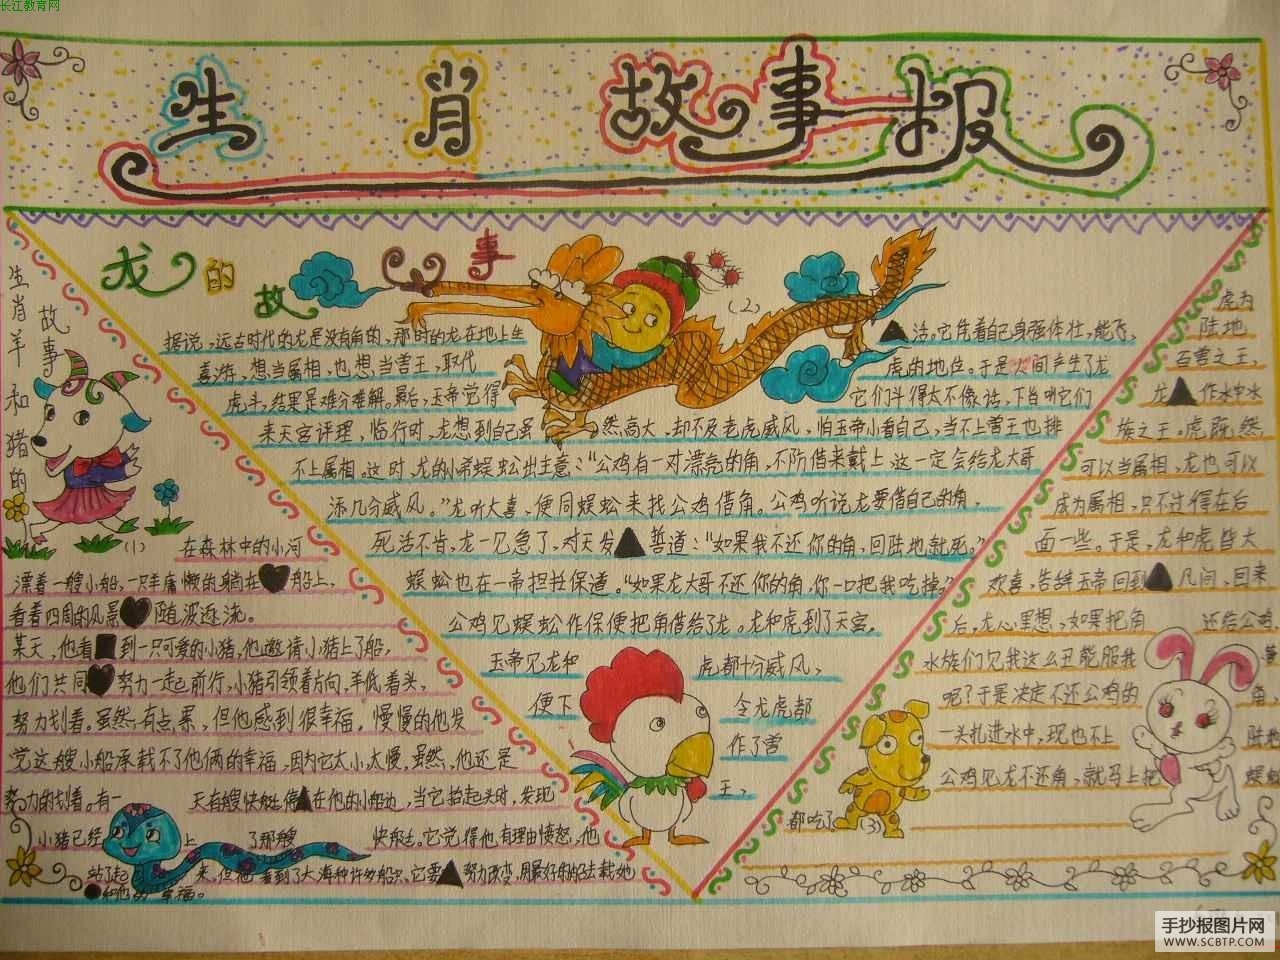 长江教育网
生肖故事报
生肖羊和猪的故事
(1)
在森林中的小河
漂着一艘小船,一只羊慵懒的躺在船上,
看着四周的风景随波逐流。
某天,他看到一只可爱的小猪,他邀请小猪上了船,
他们共同努力一起前行,小猪引领着方向,羊低着头,
努力划着。虽然有点累,但他感到很幸福,慢慢的他发
觉这艘小船承载不了他俩的幸福,因为它太小,太慢,虽然,他还是
努力的划着。有一天有艘快艇停在他的小船边,当它抬起头时,发现
小猪已经上了那艘快艇。它觉得他有理由愤怒,他
站了起来,但他看到了大海种许多船只,它要努力改变,用最好的船去载她
和他的幸福。
龙的故事
(2)
据说,远古时代的龙是没有角的,那时的龙在地上生活。它凭着自己身强体壮,能飞,
善游,想当属相,也想当兽王,取代虎的地位。于是人间产生了龙
虎斗,结果是难分难解。最后,玉帝觉得它们斗得太不像话,下旨叫它们
来天宫评理,临行时,龙想到自己虽然高大,却不及老虎威风,怕玉帝小看自己,当不上兽王也排
不上属相,这时,龙的小弟蜈蚣出主意:“公鸡有一对漂亮的角,不防借来戴上,这一定会给龙大哥
添几分威风。”龙听大喜,便同蜈蚣来找公鸡借角。公鸡听说龙要借自己的角,
死活不肯,龙一见急了,对天发誓道:“如果我不还你的角,回陆地就死。”
蜈蚣也在一帝担抵保道。“如果龙大哥不还你的角,你一口把我吃掉?
公鸡见蜈蚣作保便把角借给了龙。龙和虎到了天宫,
玉帝见龙和虎都十分威风,
便下令龙虎都
作了兽
王,
虎为
陆地
百兽之王,
龙作水中水
族之王。虎既然
可以当属相,龙也可以
成为属相,只不过得在后
面一些。于是,龙和虎皆大
欢喜,告辞玉帝回到凡间,回来
后,龙心里想,如果把角还给公鸡,
水族们见我这么丑能服我
呢?于是决定不还公鸡的角,
一头扎进水中,现也不上陆地
公鸡见龙不还角,就马上把蜈蚣
都吃了
(3)
手抄报图片网
WWW.SCBTP.COM